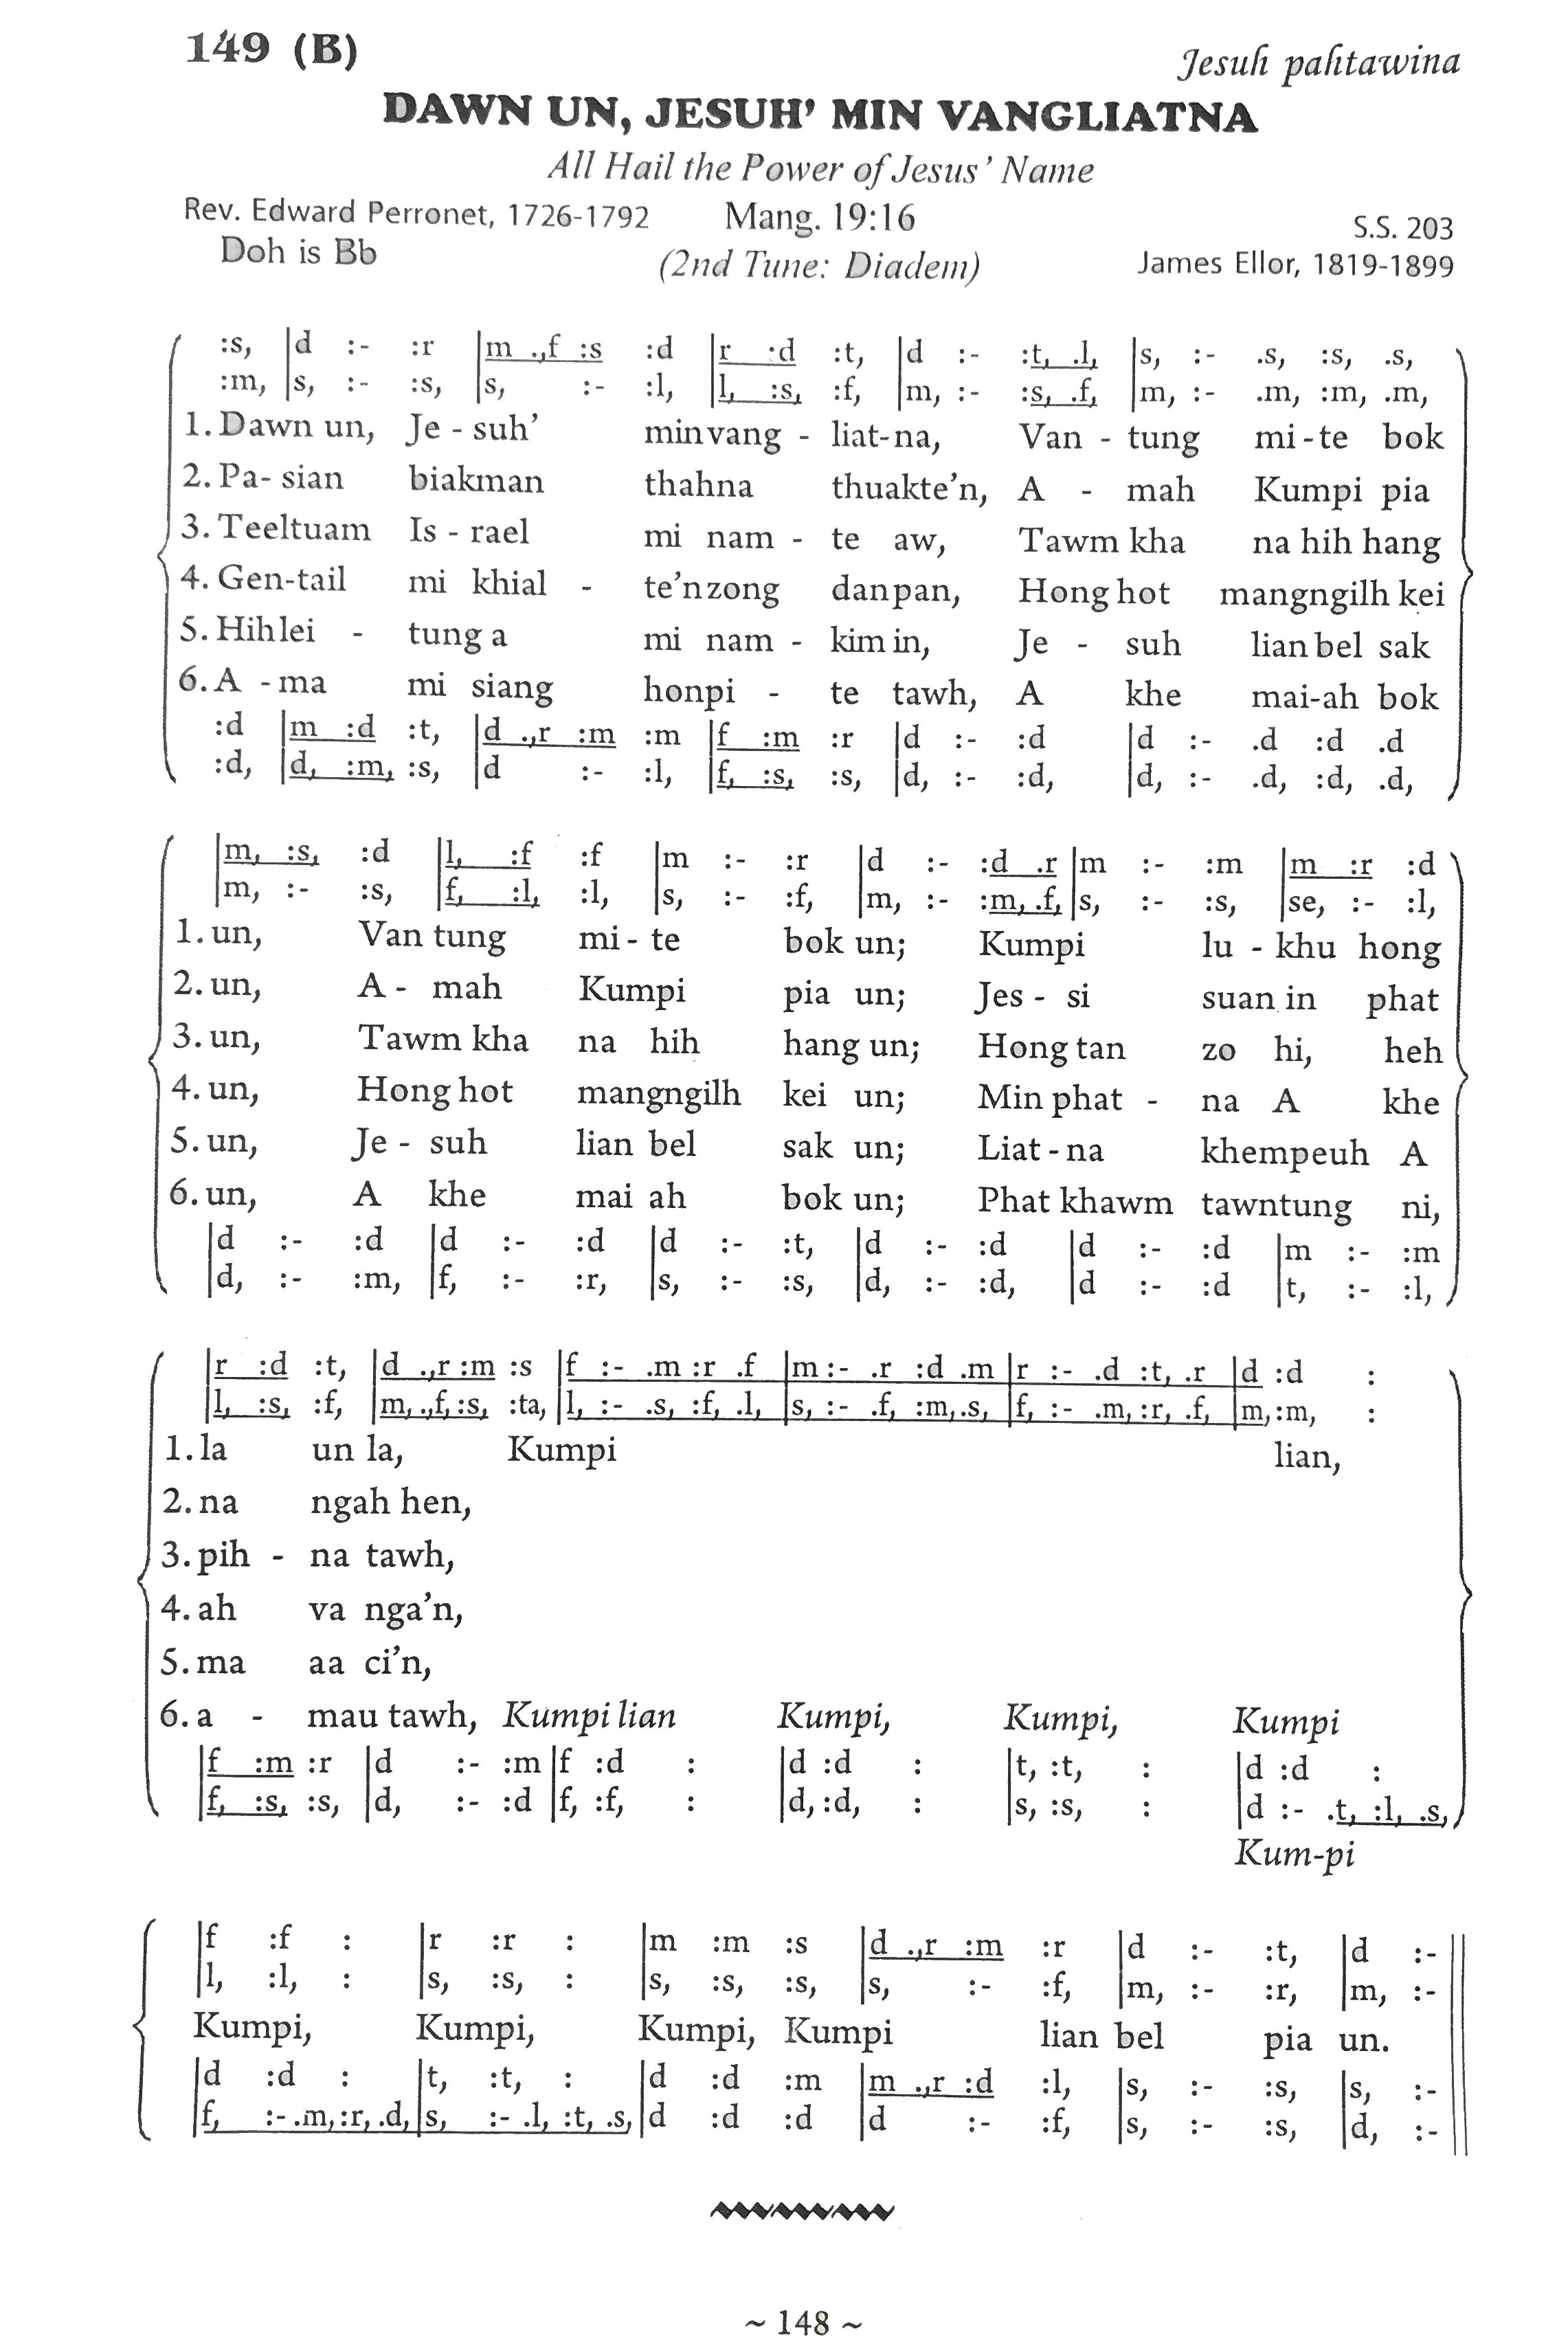 149 (B)
Jesuh pahtawina
DAWN UN, JESUH' MIN VANGLIATNA
All Hail the Power of Jesus' Name
Rev. Edward Perronet, 1726-1792 Mang. 19:16 S.S. 203
Doh is Bb (2nd Tune: Diadem) James Ellor, 1819-1899
:s, |d :- :r |m .,f :s :d |r :d :t, |d :- :t, .l, |s, :- .s, :s, .s,
:m, |s, :- :s, |s, :- :l, |l, :s, :f, |m, :- :s, .f, |m, :- .m, :m, .m,
1. Dawn un, Je - suh' min vang - liat-na, Van - tung mi - te bok
2. Pa- sian biakman thahna thuakte'n, A - mah Kumpi pia
3. Teeltuam Is - rael mi nam - te aw, Tawm kha na hih hang
4. Gen-tail mi khial - te'n zong danpan, Hong hot mangngilh kei
5. Hih lei - tung a mi nam - kim in, Je - suh lian bel sak
6. A -ma mi siang honpi - te tawh, A khe mai-ah bok
:d |m :d :t, |d .,r :m :m |f :m :r |d :- :d |d :- .d :d .d
:d, |d, :m, :s, |d :- :l, |f, :s, :s, |d, :- :d, |d, :- .d, :d, .d,
|m, :s, :d |l, :f :f |m :- :r |d :- :d .r |m :- :m |m :r :d
|m, :- :s, |f, :l, :l, |s, :- :f, |m, :- :m, .f, |s, :- :s, |se, :- :l,
1. un, Van tung mi- te bok un; Kumpi lu - khu hong
2. un, A - mah Kumpi pia un; Jes - si suan in phat
3. un, Tawm kha na hih hang un; Hong tan zo hi, heh
4. un, Hong hot mangngilh kei un; Min phat - na A khe
5. un, Je - suh lian bel sak un; Liat - na khempeuh A
6. un, A khe mai ah bok un; Phat khawm tawntung ni,
|d :- :d |d :- :d |d :- :t, |d :- :d |d :- :d |m :- :m
|d, :- :m, |f, :- :r, |s, :- :s, |d, :- :d, |d :- :d |t, :- :l,
|r :d :t, |d .,r :m :s |f :- .m :r .f |m :- .r :d .m |r :- .d :t, .r |d :d :
|l, :s, :f, |m, .,f, :s, :ta, |l, :- .s, :f, .l, |s, :- .f, :m, .s, |f, :- .m, :r, .f, |m, :m, :
1. la un la, Kumpi lian,
2. na ngah hen,
3. pih - na tawh,
4. ah va nga'n,
5. ma aa ci'n,
6. a - mau tawh, Kumpi lian Kumpi, Kumpi, Kumpi
|f :m :r |d :- :m |f :d : |d :d : |t, :t, : |d :d :
|f, :s, :s, |d, :- :d |f, :f, : |d, :d, : |s, :s, : |d :- .t, :l, .s,
Kum-pi
|f :f : |r :r : |m :m :s |d .,r :m :r |d :- :t, |d :-
|l, :l, : |s, :s, : |s, :s, :s, |s, :- :f, |m, :- :r, |m, :-
Kumpi, Kumpi, Kumpi, Kumpi lian bel pia un.
|d :d : |t, :t, : |d :d :m |m .,r :d :l, |s, :- :s, |s, :-
|f, :- .m, :r, .d, |s, :- .l, :t, .s, |d :d :d |d :- :f, |s, :- :s, |d, :-
~ 148 ~